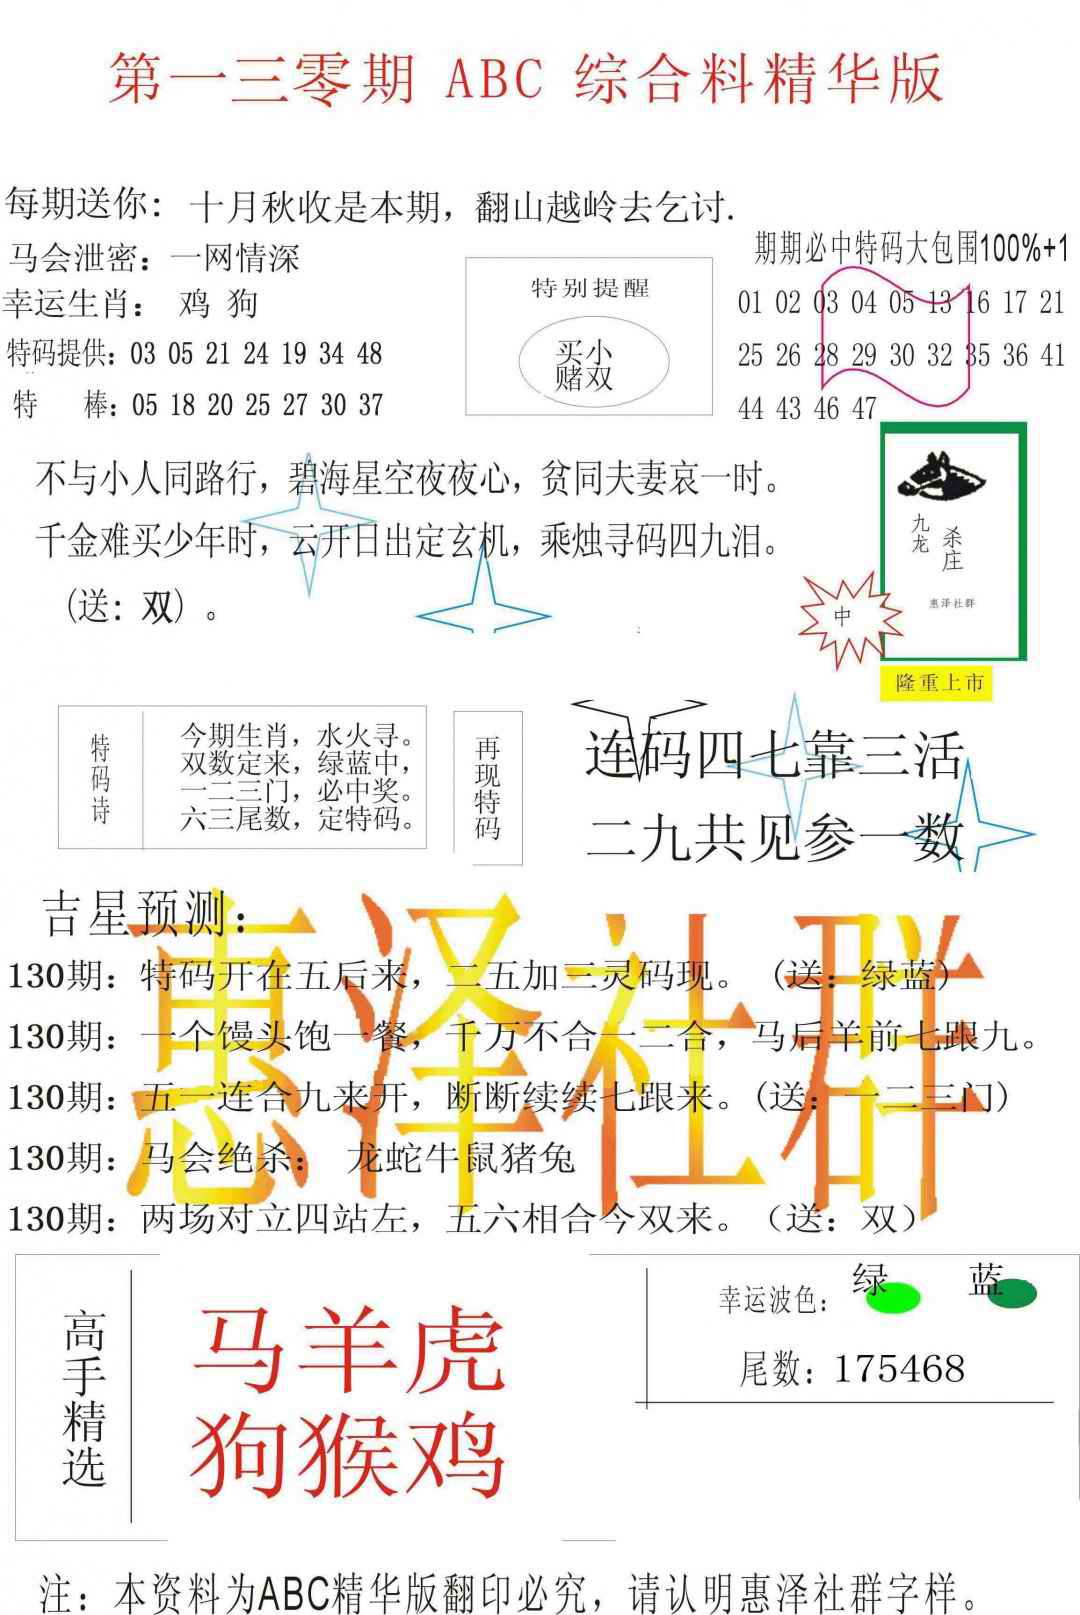 第一三零期 ABC 综合料精华版
每期送你: 十月秋收是本期，翻山越岭去乞讨.
马会泄密：一网情深
幸运生肖： 鸡 狗
特码提供：03 05 21 24 19 34 48
特 棒：05 18 20 25 27 30 37
特别提醒
买小
赌双
期期必中特码大包围100%+1
01 02 03 04 05 13 16 17 21
25 26 28 29 30 32 35 36 41
44 43 46 47
不与小人同路行，碧海星空夜夜心，贫同夫妻哀一时。
千金难买少年时，云开日出定玄机，乘烛寻码四九泪。
(送：双) 。
九龙
杀庄
惠泽社群
中
隆重上市
特码诗
今期生肖，水火寻。
双数定来，绿蓝中，
一二三门，必中奖。
六三尾数，定特码。
再现特码
连码四七靠三活
二九共见参一数
吉星预测：
惠泽社群
130期：特码开在五后来，二五加三灵码现。 (送：绿蓝)
130期：一个馒头饱一餐，千万不合一二合，马后羊前七跟九。
130期：五一连合九来开，断断续续七跟来。(送：一二三门)
130期：马会绝杀： 龙蛇牛鼠猪兔
130期：两场对立四站左，五六相合今双来。（送：双）
高手精选
马羊虎
狗猴鸡
幸运波色： 绿 蓝
尾数：175468
注：本资料为ABC精华版翻印必究，请认明惠泽社群字样。